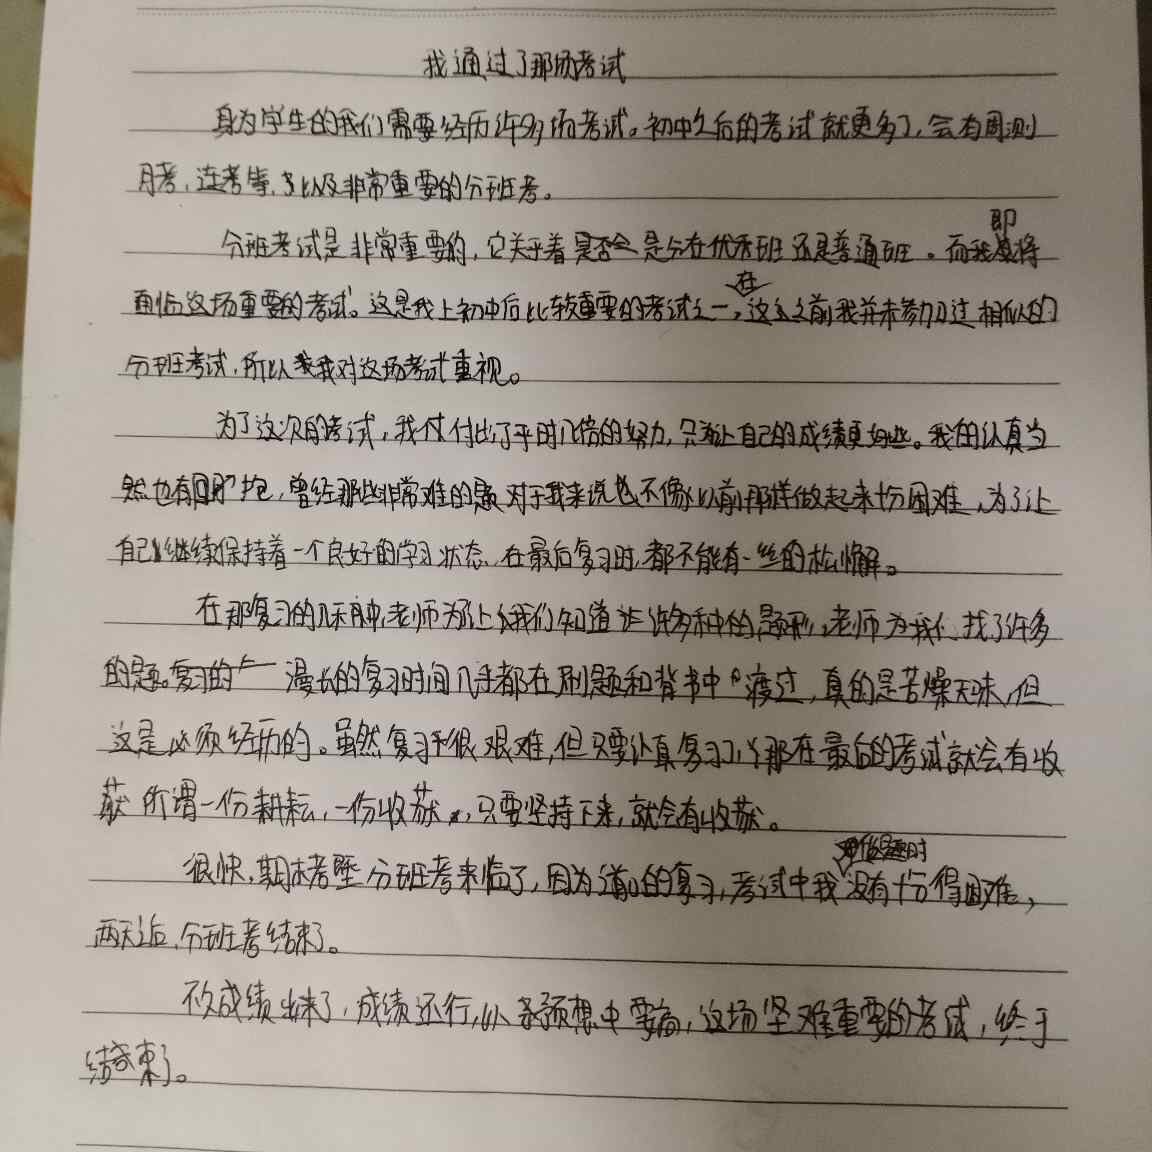 我通过了那场考试
身为学生的我们需要经历许多场考试。初中之后的考试就更多了,会有周测
月考,连考等,以及非常重要的分班考。
分班考试是非常重要的,它关乎着是否会是分在优秀班还是普通班。而我即将
面临这场重要的考试。这是我上初中后比较重要的考试之一,在这之前我并未参加过相似的
分班考试,所以我对这场考试重视。
为了这次的考试,我付出了平时几倍的努力,只为让自己的成绩更好些。我的认真当
然也有回报,曾经那些非常难的题对于我来说也不像以前那样做起来十分困难,为了让
自己继续保持着一个良好的学习状态,在最后复习时,都不能有一丝的松懈。
在那复习的几天中,老师为了让我们知道许多种的题形,老师为我们找了许多
的题。漫长的复习时间几乎都在刷题和背书中渡过,真的是苦燥无味,但
这是必须经历的。虽然复习很艰难,但只要认真复习了,那在最后的考试就会有收
获所谓一份耕耘,一份收获,只要坚持下来,就会有收获。
很快,期末考暨分班考来临了,因为之前的复习,考试中我做题时没有十分得困难,
两天后,分班考结束了。
成绩出来了,成绩还行,从预想中要高,这场坚难重要的考试,终于
结束了。